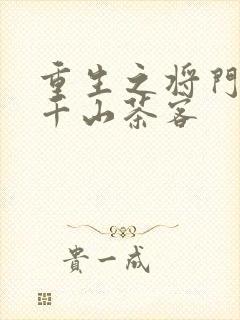 重生之将門
千山茶客
貴一成